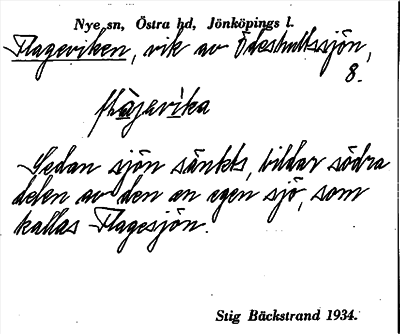 Nye sn, Östra hd, Jönköpings l.
Flageviken, vik av Ödeshultssjön,
8.
flàjevika
Sedan sjön sänkts, bildar södra
delen av den en egen sjö, som
kallas Flagesjön.
Stig Bäckstrand 1934.